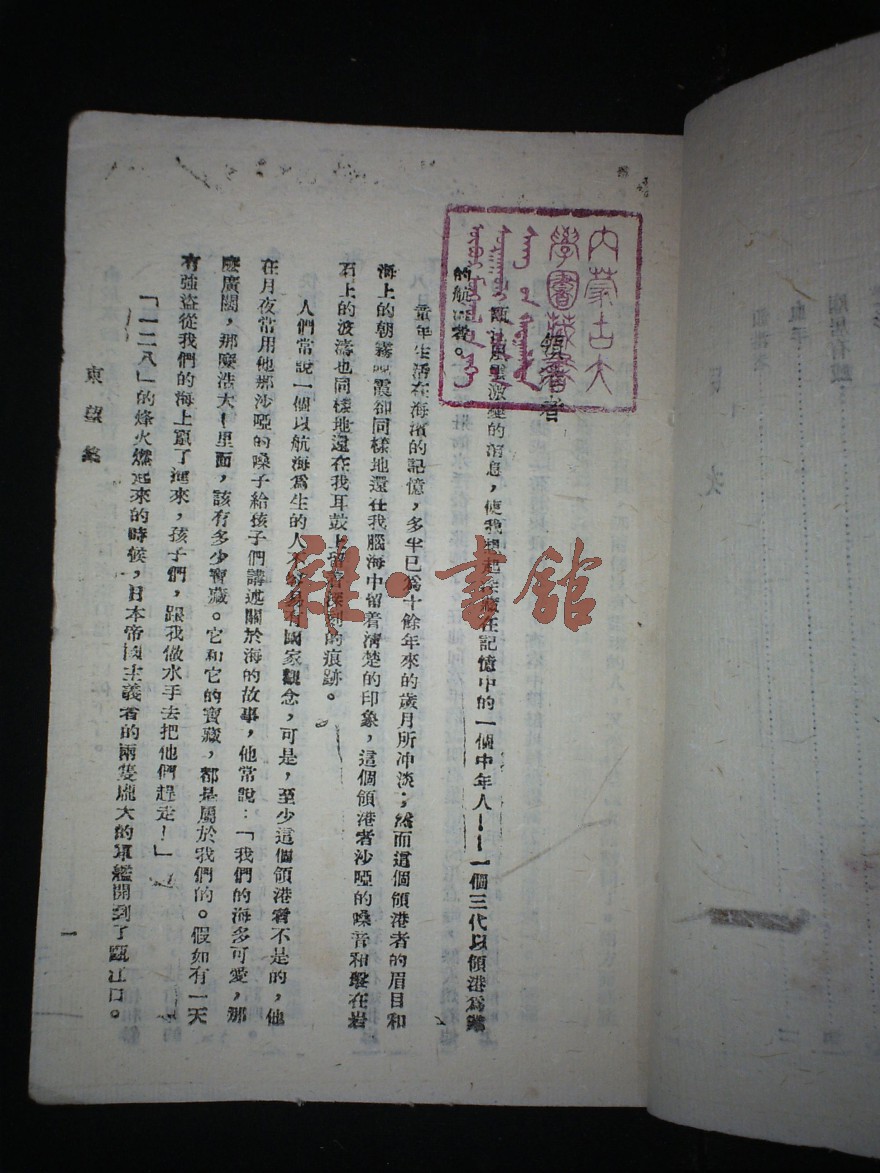 內蒙古大
者
風雲激變的消息，使我想起藏在記憶中的一個中年人——一個三代以領港爲業
的航海者。
童年生活在海濱的記憶，多半已爲十餘年來的歲月所冲淡；然而這個領港者的眉目和
海上的朝霧晚霞卻同樣地還在我腦海中留着淸楚的印象，這個領港者沙啞的嗓音和擊在岩
石上的波濤也同樣地還在我耳鼓上留着深刻的痕跡。
人們常說一個以航海爲生的人不容易有國家觀念，可是，至少這個領港者不是的，他
在月夜常用他那沙啞的嗓子給孩子們講述關於海的故事，他常說：「我們的海多可愛，那
麼廣闊，那麼浩大！里面，該有多少寶藏。它和它的寶藏，都是屬於我們的。假如有一天
有強盜從我們的海上竄了進來，孩子們，跟我做水手去把他們趕走！」
「一二八」的烽火燃起來的時候，日本帝國主義者的兩隻龐大的軍艦開到了甌江口。
東望集
一
雜·書館
血手